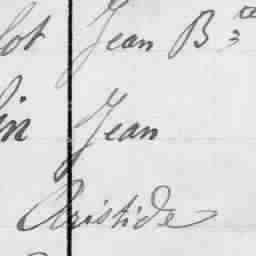 lot Jean B^te
in Jean
Aristide